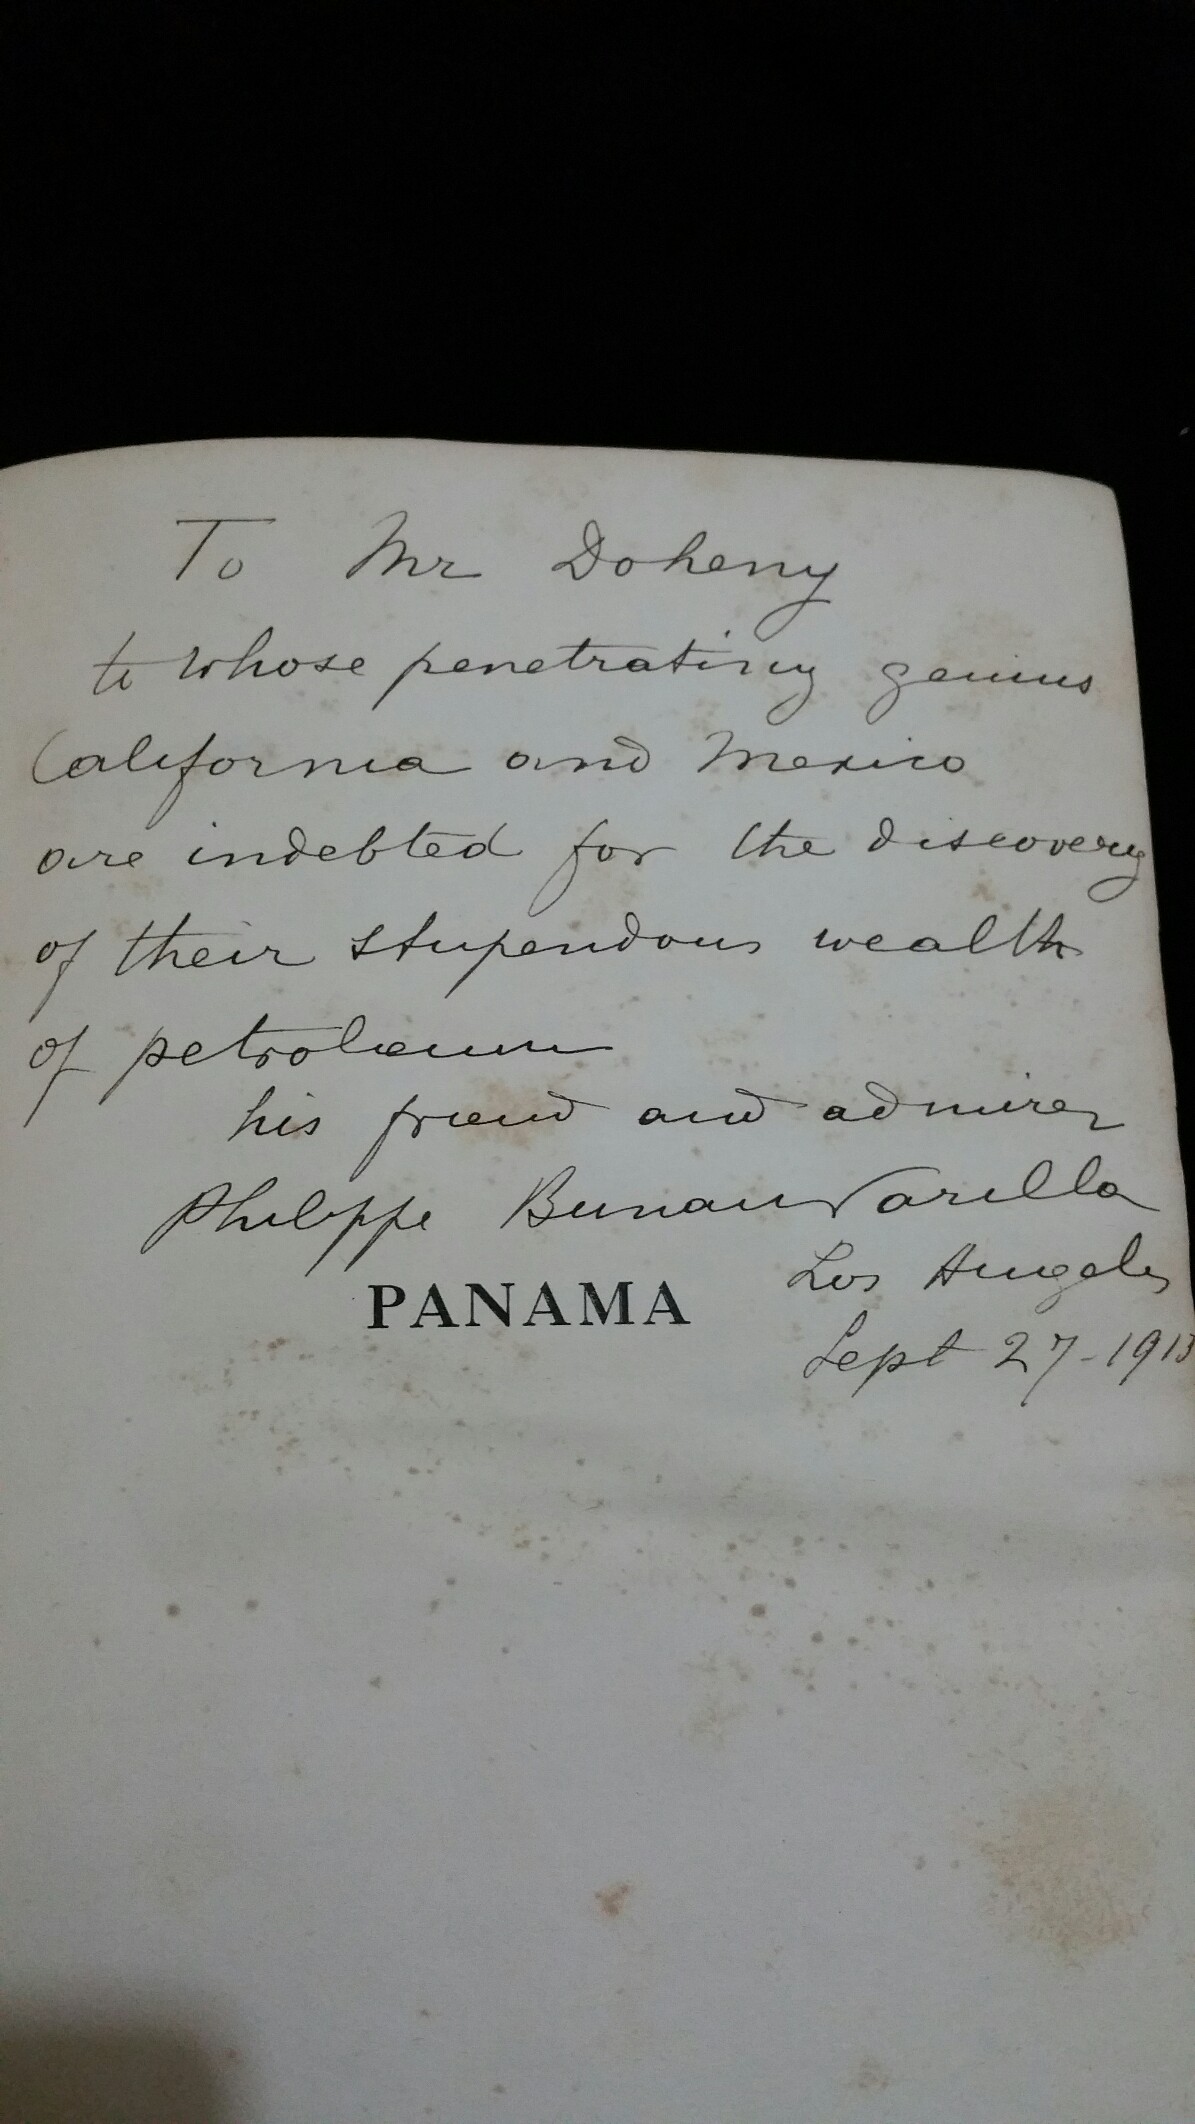 To Mr Doheny
to whose penetrating genius
California and Mexico
are indebted for the discovery
of their stupendous wealth
of petroleum
his friend and admirer
Philippe Bunau Varilla
PANAMA
Los Angeles
Sept 27-1913